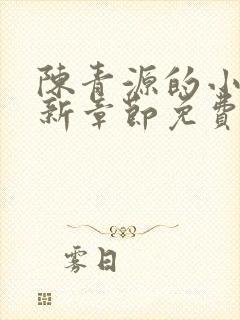 陳青源的小
新章節免費
雾日